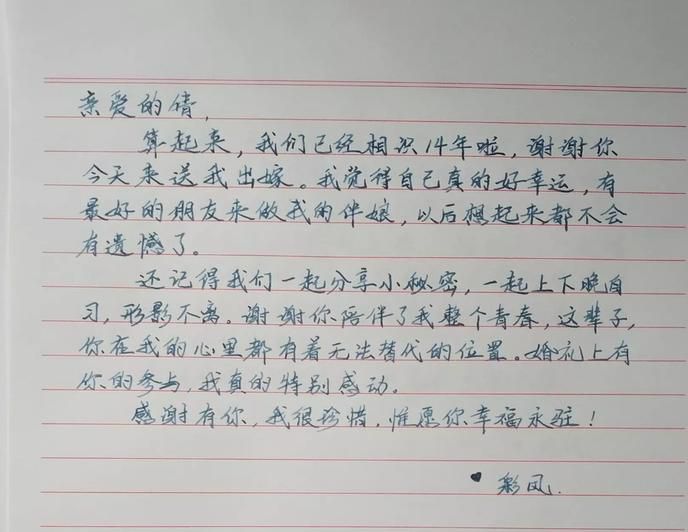 亲爱的倩，
算起来，我们已经相识14年啦，谢谢你
今天来送我出嫁。我觉得自己真的好幸运，有
最好的朋友来做我的伴娘，以后想起来都不会
有遗憾了。
还记得我们一起分享小秘密，一起上下晚自
习，形影不离。谢谢你陪伴了我整个青春，这辈子，
你在我的心里都有着无法替代的位置。婚礼上有
你的参与，我真的特别感动。
感谢有你，我很珍惜，惟愿你幸福永驻！
♥ 彩凤.